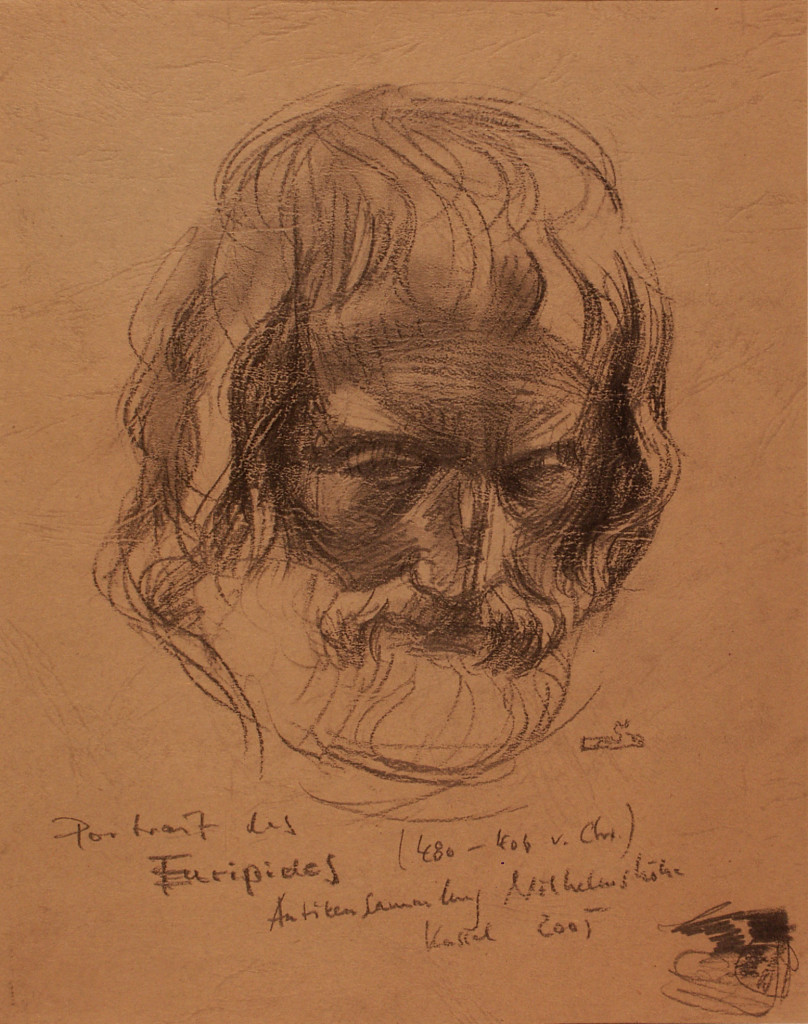 Portrait des
Euripides (480 – 406 v. Chr.)
Antikensammlung Wilhelmshöhe
Kassel 2005